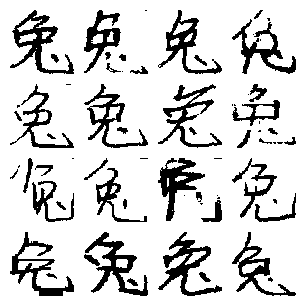 兔兔兔兔
兔兔兔兔
兔兔兔
兔兔兔兔